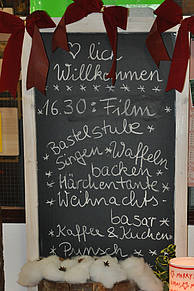 ♡ lich
Willkommen
*16.30: Film*
Bastelstube
Singen * Waffeln
backen *
*Märchentante*
Weihnachts-
basar *
*Kaffee & Kuchen
*Punsch*